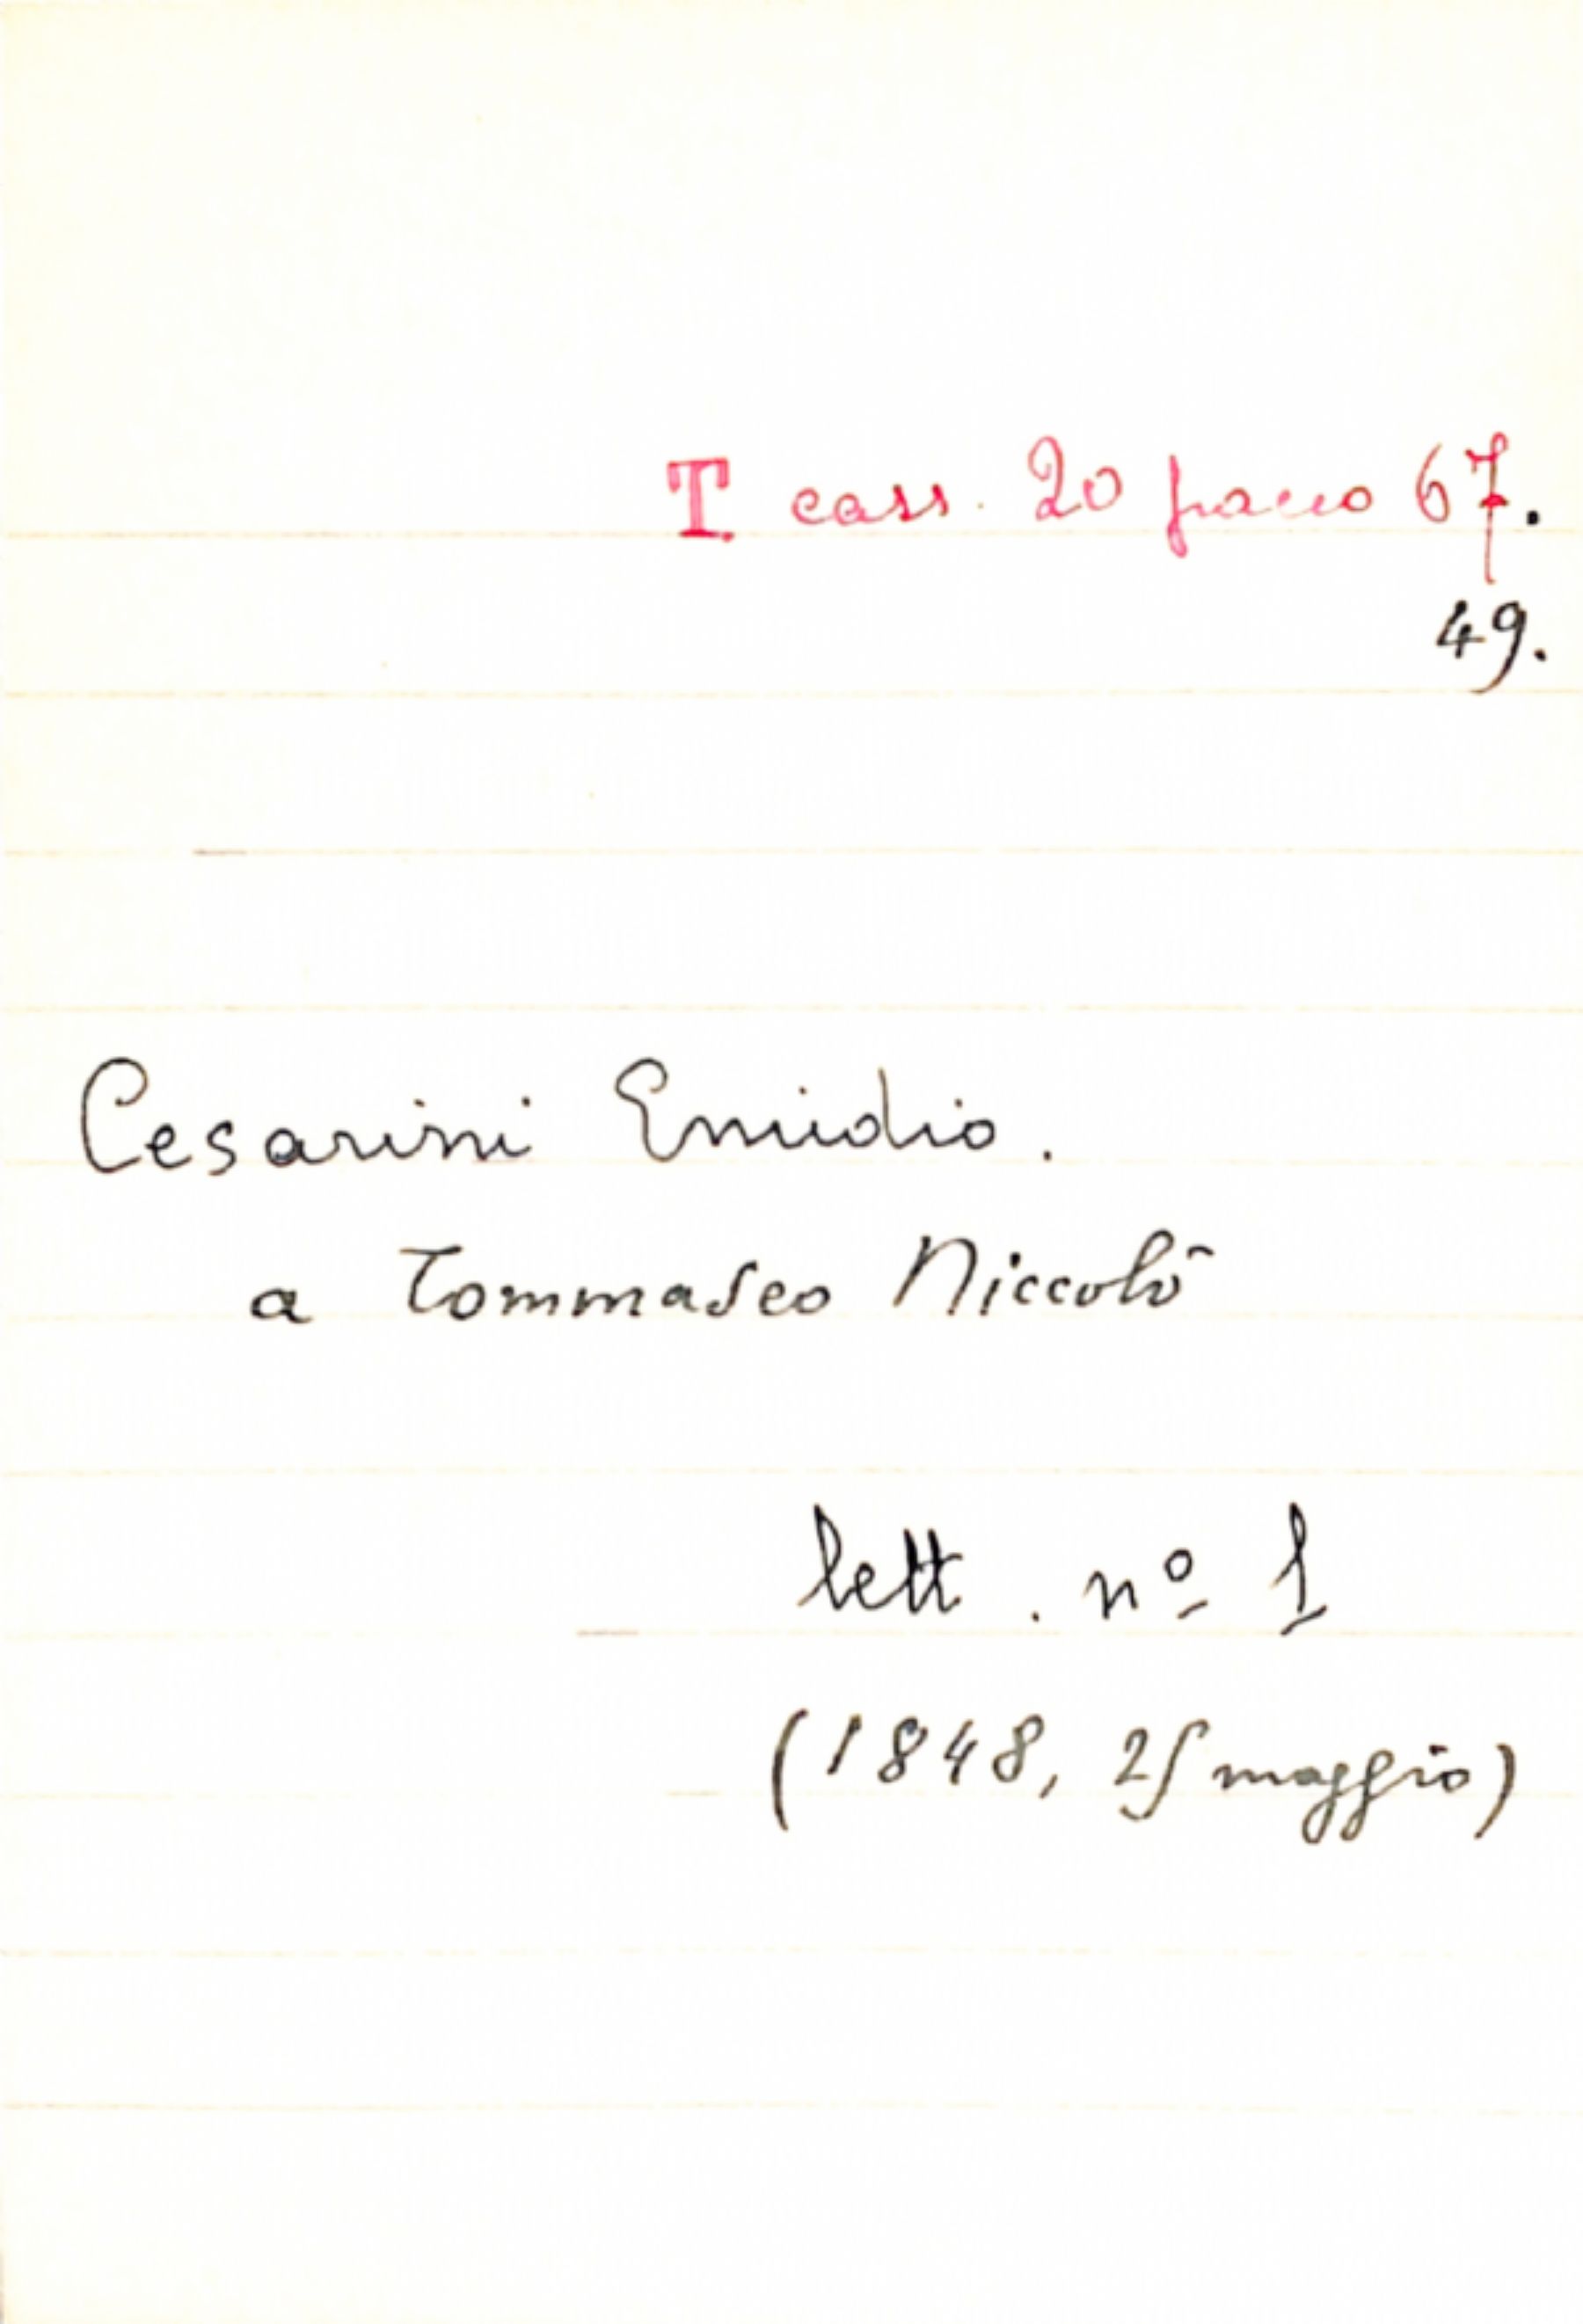 T. cass. 20 pacco 67.
49.
Cesarini Emidio.
a Tommaseo Niccolò
lett. nº 1
(1848, 25 maggio)